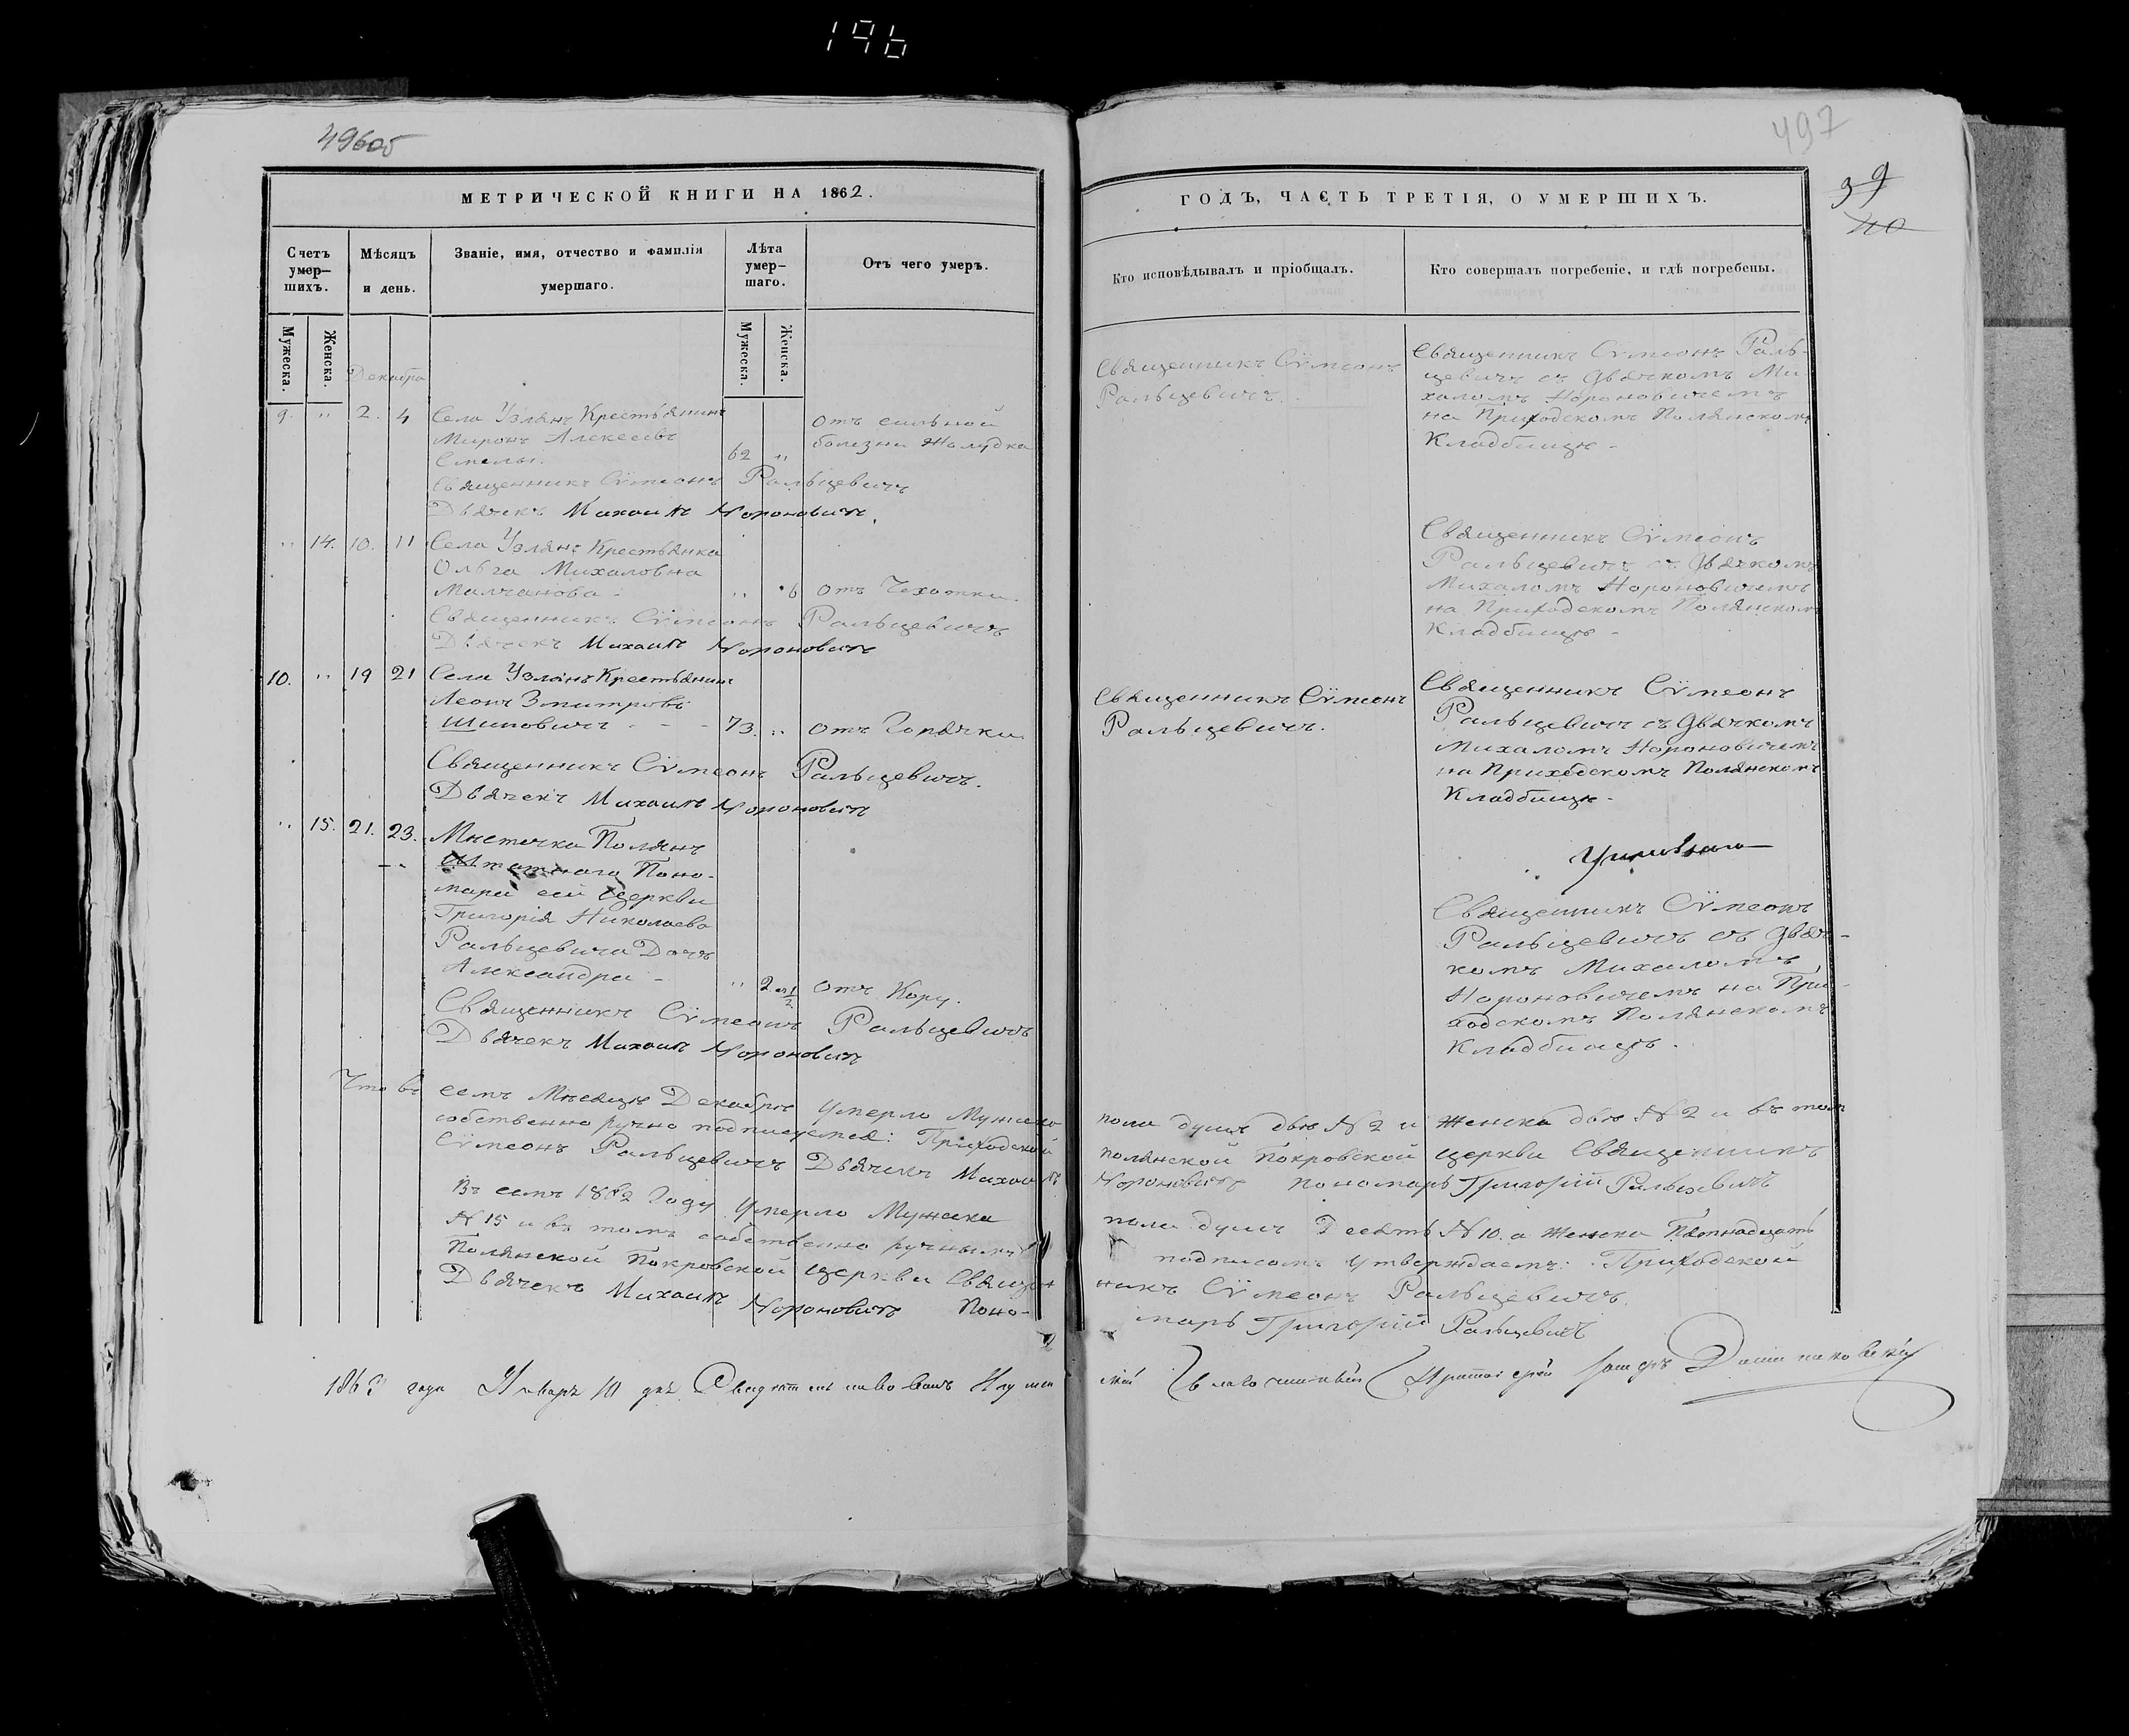 196
496об
497
МЕТРИЧЕСКОЙ КНИГИ НА 1862.
ГОДЪ, ЧАСТЬ ТРЕТІЯ, О УМЕРШИХЪ.
39
40
Счетъ умер-шихъ.
Мѣсяцъ и день.
Званіе, имя, отчество и фамилія умершаго.
Лѣта умер-шаго.
Отъ чего умеръ.
Кто исповѣдывалъ и пріобщалъ.
Кто совершалъ погребеніе, и гдѣ погребены.
Мужеска.
Женска.
Мужеска.
Женска.
Декабрь
9. " 2. 4 Села Узлянъ Крестьянинъ
Миронъ Алексѣевъ
Смолы. 62 "
отъ сильной
болезни Жолудка
Священникъ Сѵмеонъ Ральцевичъ
Дьячекъ Михаилъ Нороновичъ.
Священникъ Сѵмеонъ
Ральцевичъ.
Священникъ Сѵмеонъ Раль-
цевичъ съ Дьячкомъ Ми
халомъ Нороновичемъ
на Приходскомъ Полянскомъ
Кладбищѣ -
" 14. 10. 11 Села Узлянъ Крестьянка
Ольга Михаловна
Малчанова - " 6 отъ Чехотки.
Священникъ Сѵмеонъ Ральцевичъ
Дьячекъ Михаилъ Нороновичъ
Священникъ Сѵмеонъ
Ральцевичъ съ Дьячкомъ
Михаломъ Нороновичемъ
на Приходскомъ Полянскомъ
Кладбищѣ -
10. " 19 21 Села Узлянъ Крестьянинъ
Леонъ Змитровъ
Шиповичъ - - - 73. " отъ Горячки
Священникъ Сѵмеонъ Ральцевичъ.
Дьячекъ Михаилъ Нороновичъ
Священникъ Сѵмеонъ
Ральцевичъ.
Священникъ Сѵмеонъ
Ральцевичъ съ Дьячкомъ
Михаломъ Нороновичемъ
на Приходскомъ Полянскомъ
Кладбищѣ -
" 15. 21. 23. Мѣстечка Полянъ
Поно-
маря сей Церкви
Григорія Николаева
Ральцевича Дочь
Александра - " 2 и 1/2 отъ Кору.
Священникъ Сѵмеонъ Ральцевичъ
Дьячекъ Михаилъ Нороновичъ
Священникъ Сѵмеонъ
Ральцевичъ съ Дьяч-
комъ Михаломъ
Нороновичемъ на При-
ходскомъ Полянскомъ
Кладбищѣ.
Что въ семъ Мѣсяцѣ Декабрѣ Умерло Мужеска пола душъ двѣ N 2 и женска двѣ N 2 и въ томъ
собственно ручно подписуемся: Приходской Полянской Покровской церкви Священникъ
Сѵмеонъ Ральцевичъ Дьячекъ Михаилъ Нороновичъ Пономарь Григорій Ральцевичъ
Въ семъ 1862 Году Умерло Мужеска пола душъ Десять N 10. а женска Пятнадцать
N 15 и въ томъ собственно ручнымъ подписомъ Утверждаемъ: Приходской
Полянской Покровской Церкви Священникъ Сѵмеонъ Ральцевичъ.
Дьячекъ Михаилъ Нороновичъ Поно-марь Григорій Ральцевичъ
1863 года Января 10 дня Свидѣтельствовалъ Игуменскій Благочинный Протоіерей